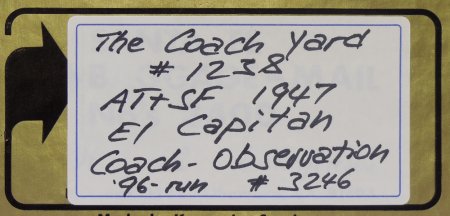 The Coach Yard
# 1238
AT+SF 1947
El Capitan
Coach-Observation
'96-run # 3246